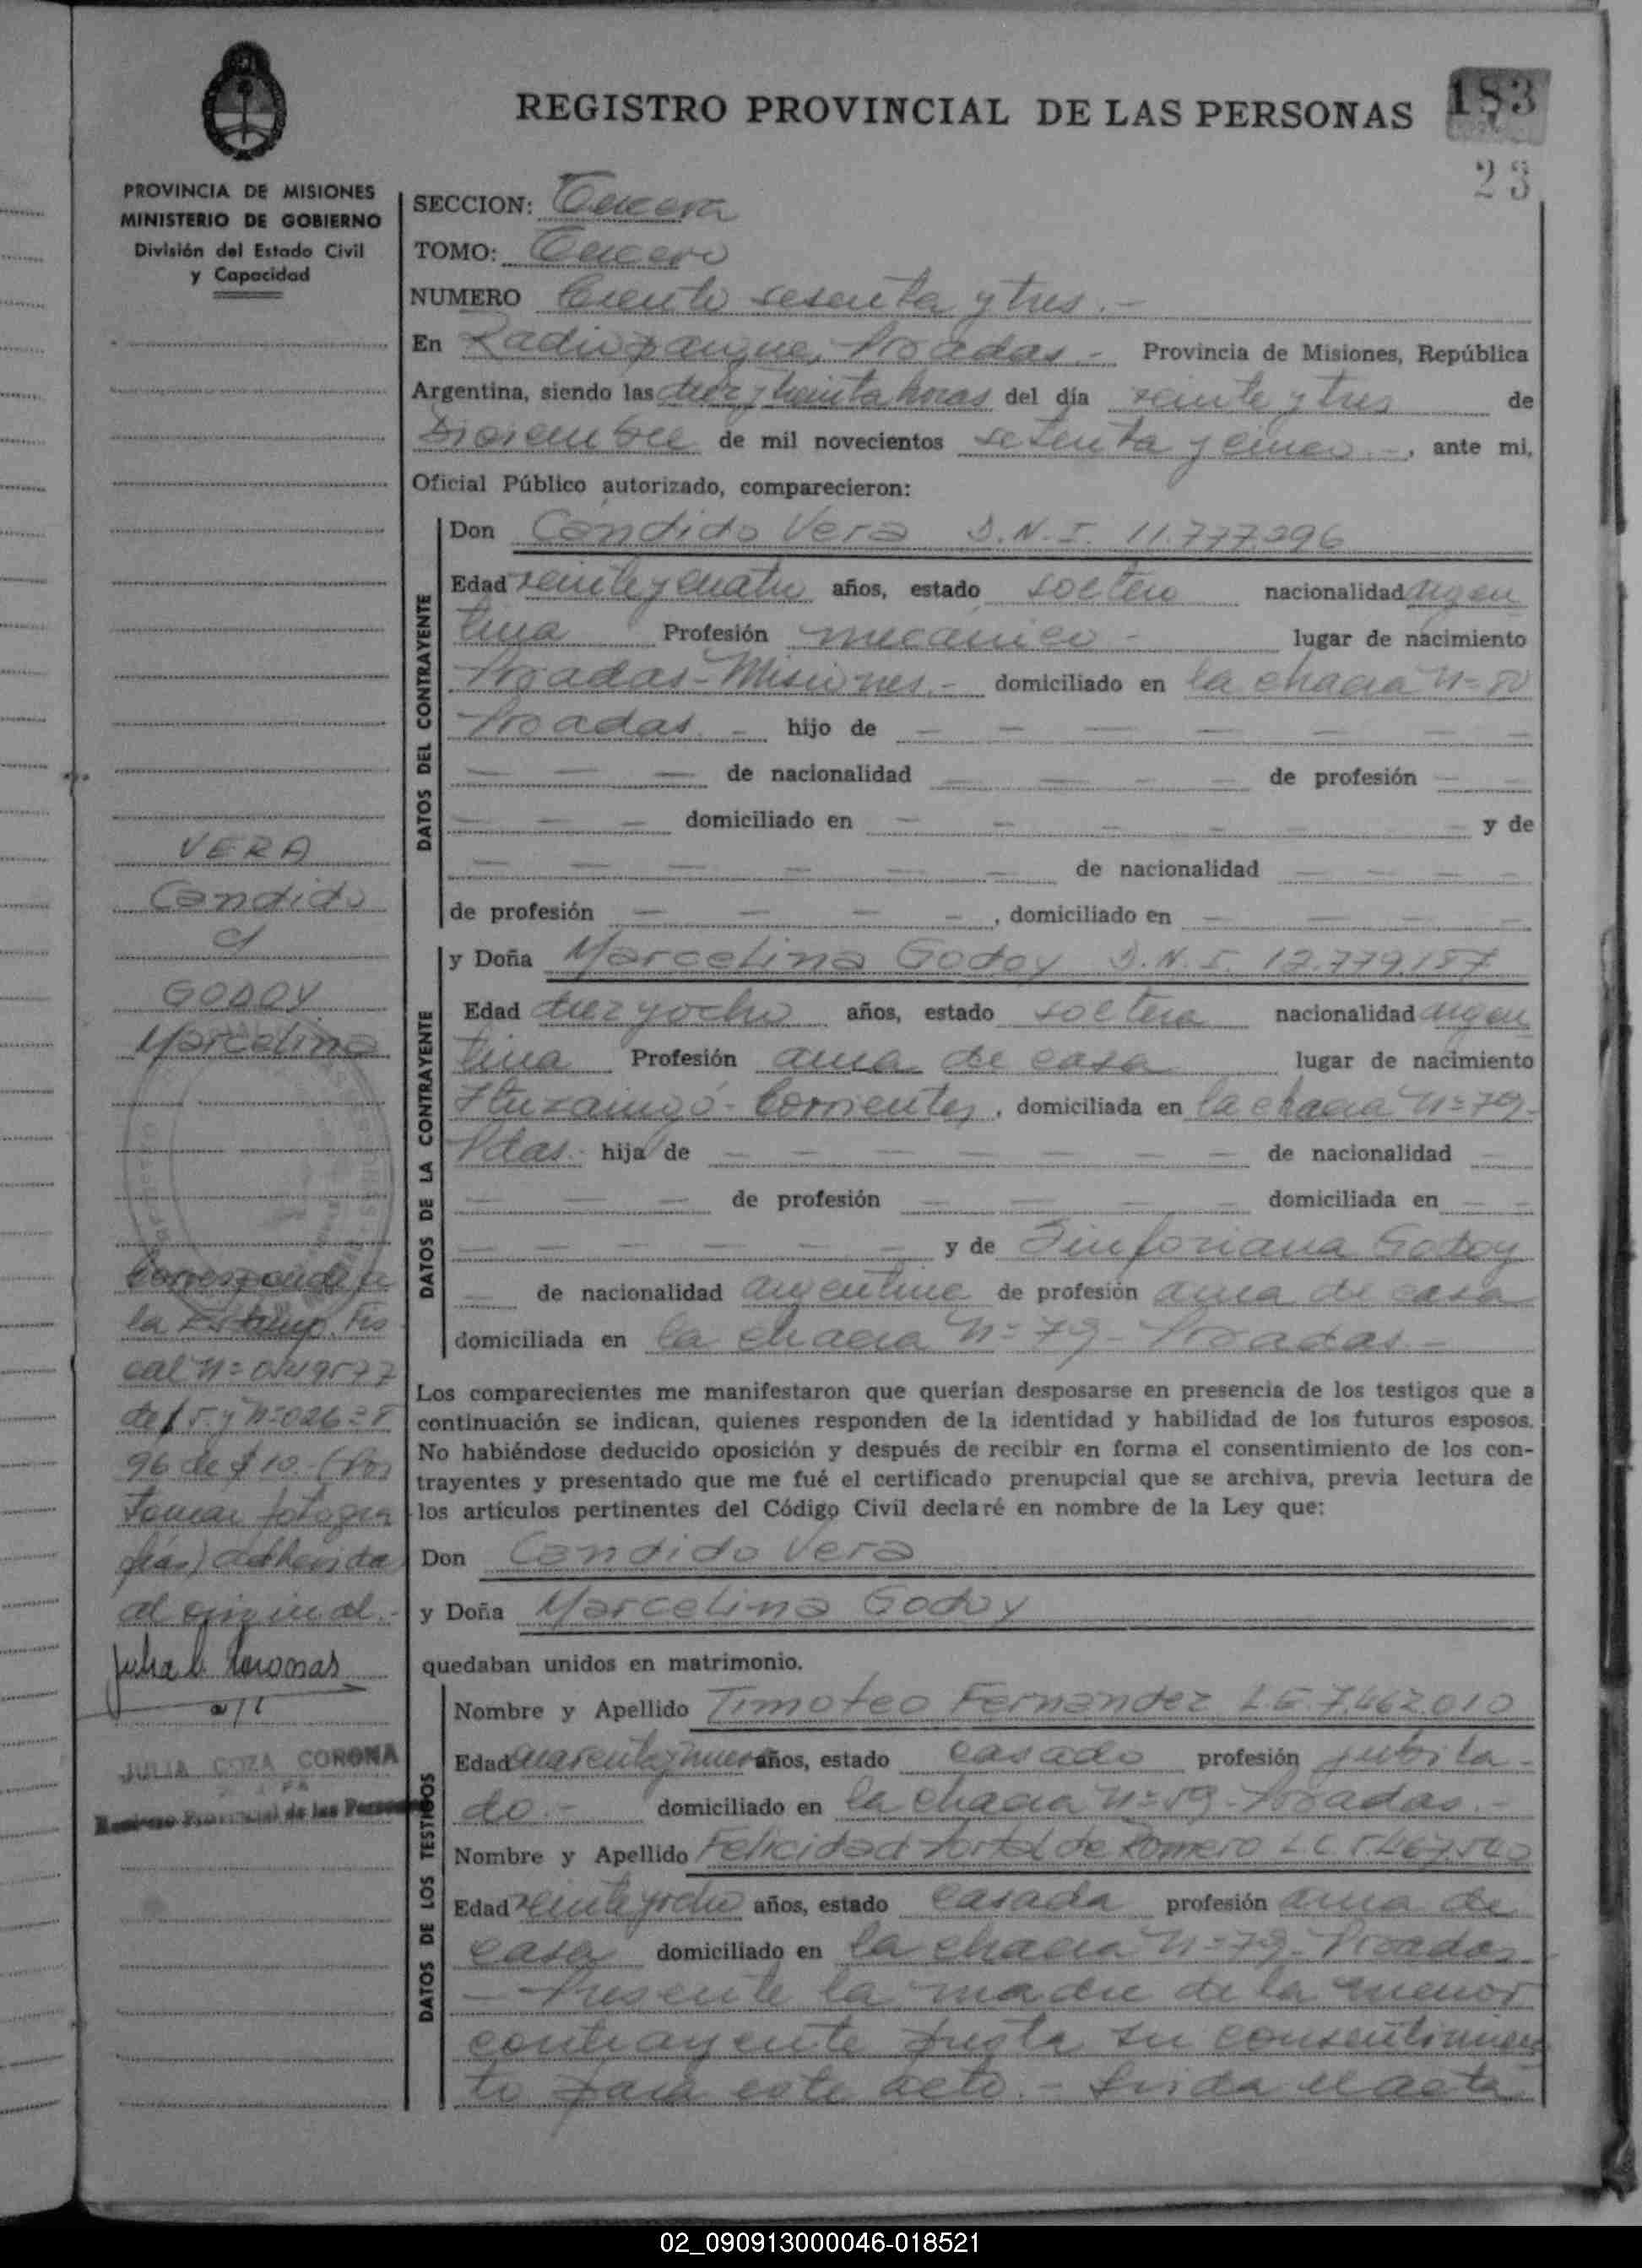 REGISTRO PROVINCIAL DE LAS PERSONAS
183
23
PROVINCIA DE MISIONES
MINISTERIO DE GOBIERNO
División del Estado Civil
y Capacidad
SECCION: Tercera
TOMO: Tercero
NUMERO Ciento sesenta y tres.-
En Posadas.- Provincia de Misiones, República
Argentina, siendo las diez y treinta horas del día veinte y tres de
de mil novecientos setenta y cinco.-, ante mi,
Oficial Público autorizado, comparecieron:
DATOS DEL CONTRAYENTE
Don Cándido Vera D.N.I. 11.777.296
Edad veinte y cuatro años, estado soltero nacionalidad argen
tina Profesión mecanico - lugar de nacimiento
Posadas-Misiones.- domiciliado en la chacra Nº 80
Posadas.- hijo de
de nacionalidad de profesión
domiciliado en y de
de nacionalidad
de profesión , domiciliado en
DATOS DE LA CONTRAYENTE
y Doña Marcelina Godoy D.N.I. 12.779187
Edad diez y ocho años, estado soltera nacionalidad argen
tina Profesión ama de casa lugar de nacimiento
Ituzaingó-Corrientes, domiciliada en la chacra Nº 79-
Pdas.- hija de de nacionalidad
de profesión domiciliada en
y de Sinforiana Godoy
de nacionalidad argentina de profesión ama de casa
domiciliada en la chacra Nº 79-Posadas.-
Los comparecientes me manifestaron que querían desposarse en presencia de los testigos que a
continuación se indican, quienes responden de la identidad y habilidad de los futuros esposos.
No habiéndose deducido oposición y después de recibir en forma el consentimiento de los con-
trayentes y presentado que me fué el certificado prenupcial que se archiva, previa lectura de
los artículos pertinentes del Código Civil declaré en nombre de la Ley que:
Don Candido Vera
y Doña Marcelina Godoy
quedaban unidos en matrimonio.
DATOS DE LOS TESTIGOS
Nombre y Apellido Timoteo Fernandez L E 7.462.010
Edad cuarenta y nueve años, estado casado profesión jubila-
do.- domiciliado en la chacra Nº 59-Posadas.-
Nombre y Apellido Felicidad Portal de Romero L C 5.467.540
Edad veinte y ocho años, estado casada profesión ama de
casa domiciliado en la chacra Nº 79-Posadas
-Presente la madre de la menor
contrayente presta su consentimien
to para este acto.- Leida el acta
VERA
Candido
c/
GODOY
Marcelina
Corresponde a
la Estamp. Fis
cal Nº 0449577
de
96 de $ 10.-(Por
tomar fotogra
fías) adherida
al original.-
JULIA COZA CORONA
Registro Provincial de las Personas
02_090913000046-018521